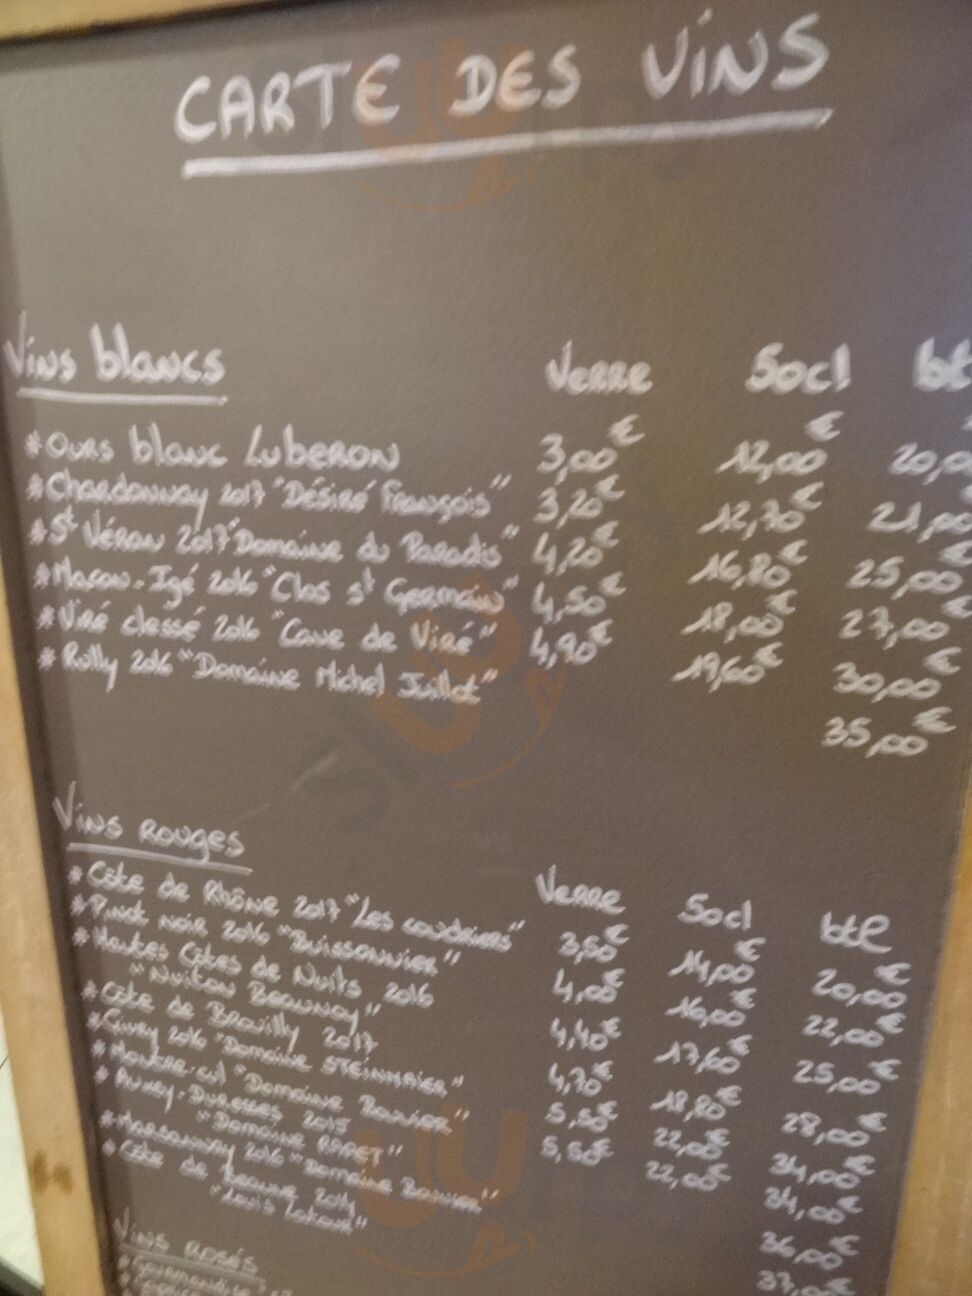 CARTE DES VINS
Vins blancs Verre 50cl bt
* Ours blanc Luberon 3,00€ 12,00€ 20,0
* Chardonnay 2017 "Désiré François" 3,20€ 12,70€ 21,00
* St Véran 2017 "Domaine du Paradis" 4,20€ 16,80€ 25,00€
* Macon-Igé 2016 "Clos st Germain" 4,50€ 18,00€ 27,00€
* Viré clessé 2016 "Cave de Viré" 4,90€ 19,60€ 30,00€
* Rully 2016 "Domaine Michel Juillot" 35,00€
Vins rouges Verre 50cl btl
* Côte de Rhône 2017 "Les coudriers" 3,50€ 14,00€ 20,00€
* Pinot noir 2016 "Buissonnier" 4,00€ 16,00€ 22,00€
* Hautes Côtes de Nuits 2016 4,40€ 17,60€ 25,00€
"Nuiton Beaunoy"
* Côte de Brouilly 2017 4,70€ 18,80€ 28,00€
* Givry 2016 "Domaine STEINMAIER" 5,50€ 22,00€ 34,00€
"Domaine Bouvier" 5,50€ 22,00€ 34,00€
* Auxey-Duresses 2015 36,00€
"Domaine RAPET"
* Marsannay 2016 "Domaine Bouvier" 37,00€
* Côte de Beaune 2014
"Louis Latour"
Vins rosés